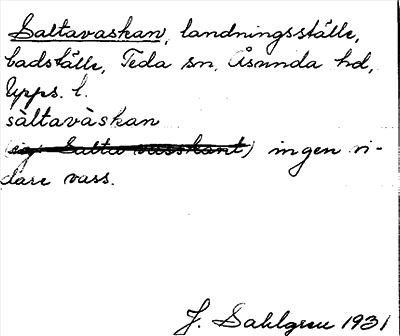 Saltavaskan, landningsställe,
badställe, Teda sn, Åsunda hd,
Upps. l.
sàltavàskan
(eg. Salta vasskant) ingen vi-
dare vass.
J. Sahlgren 1931